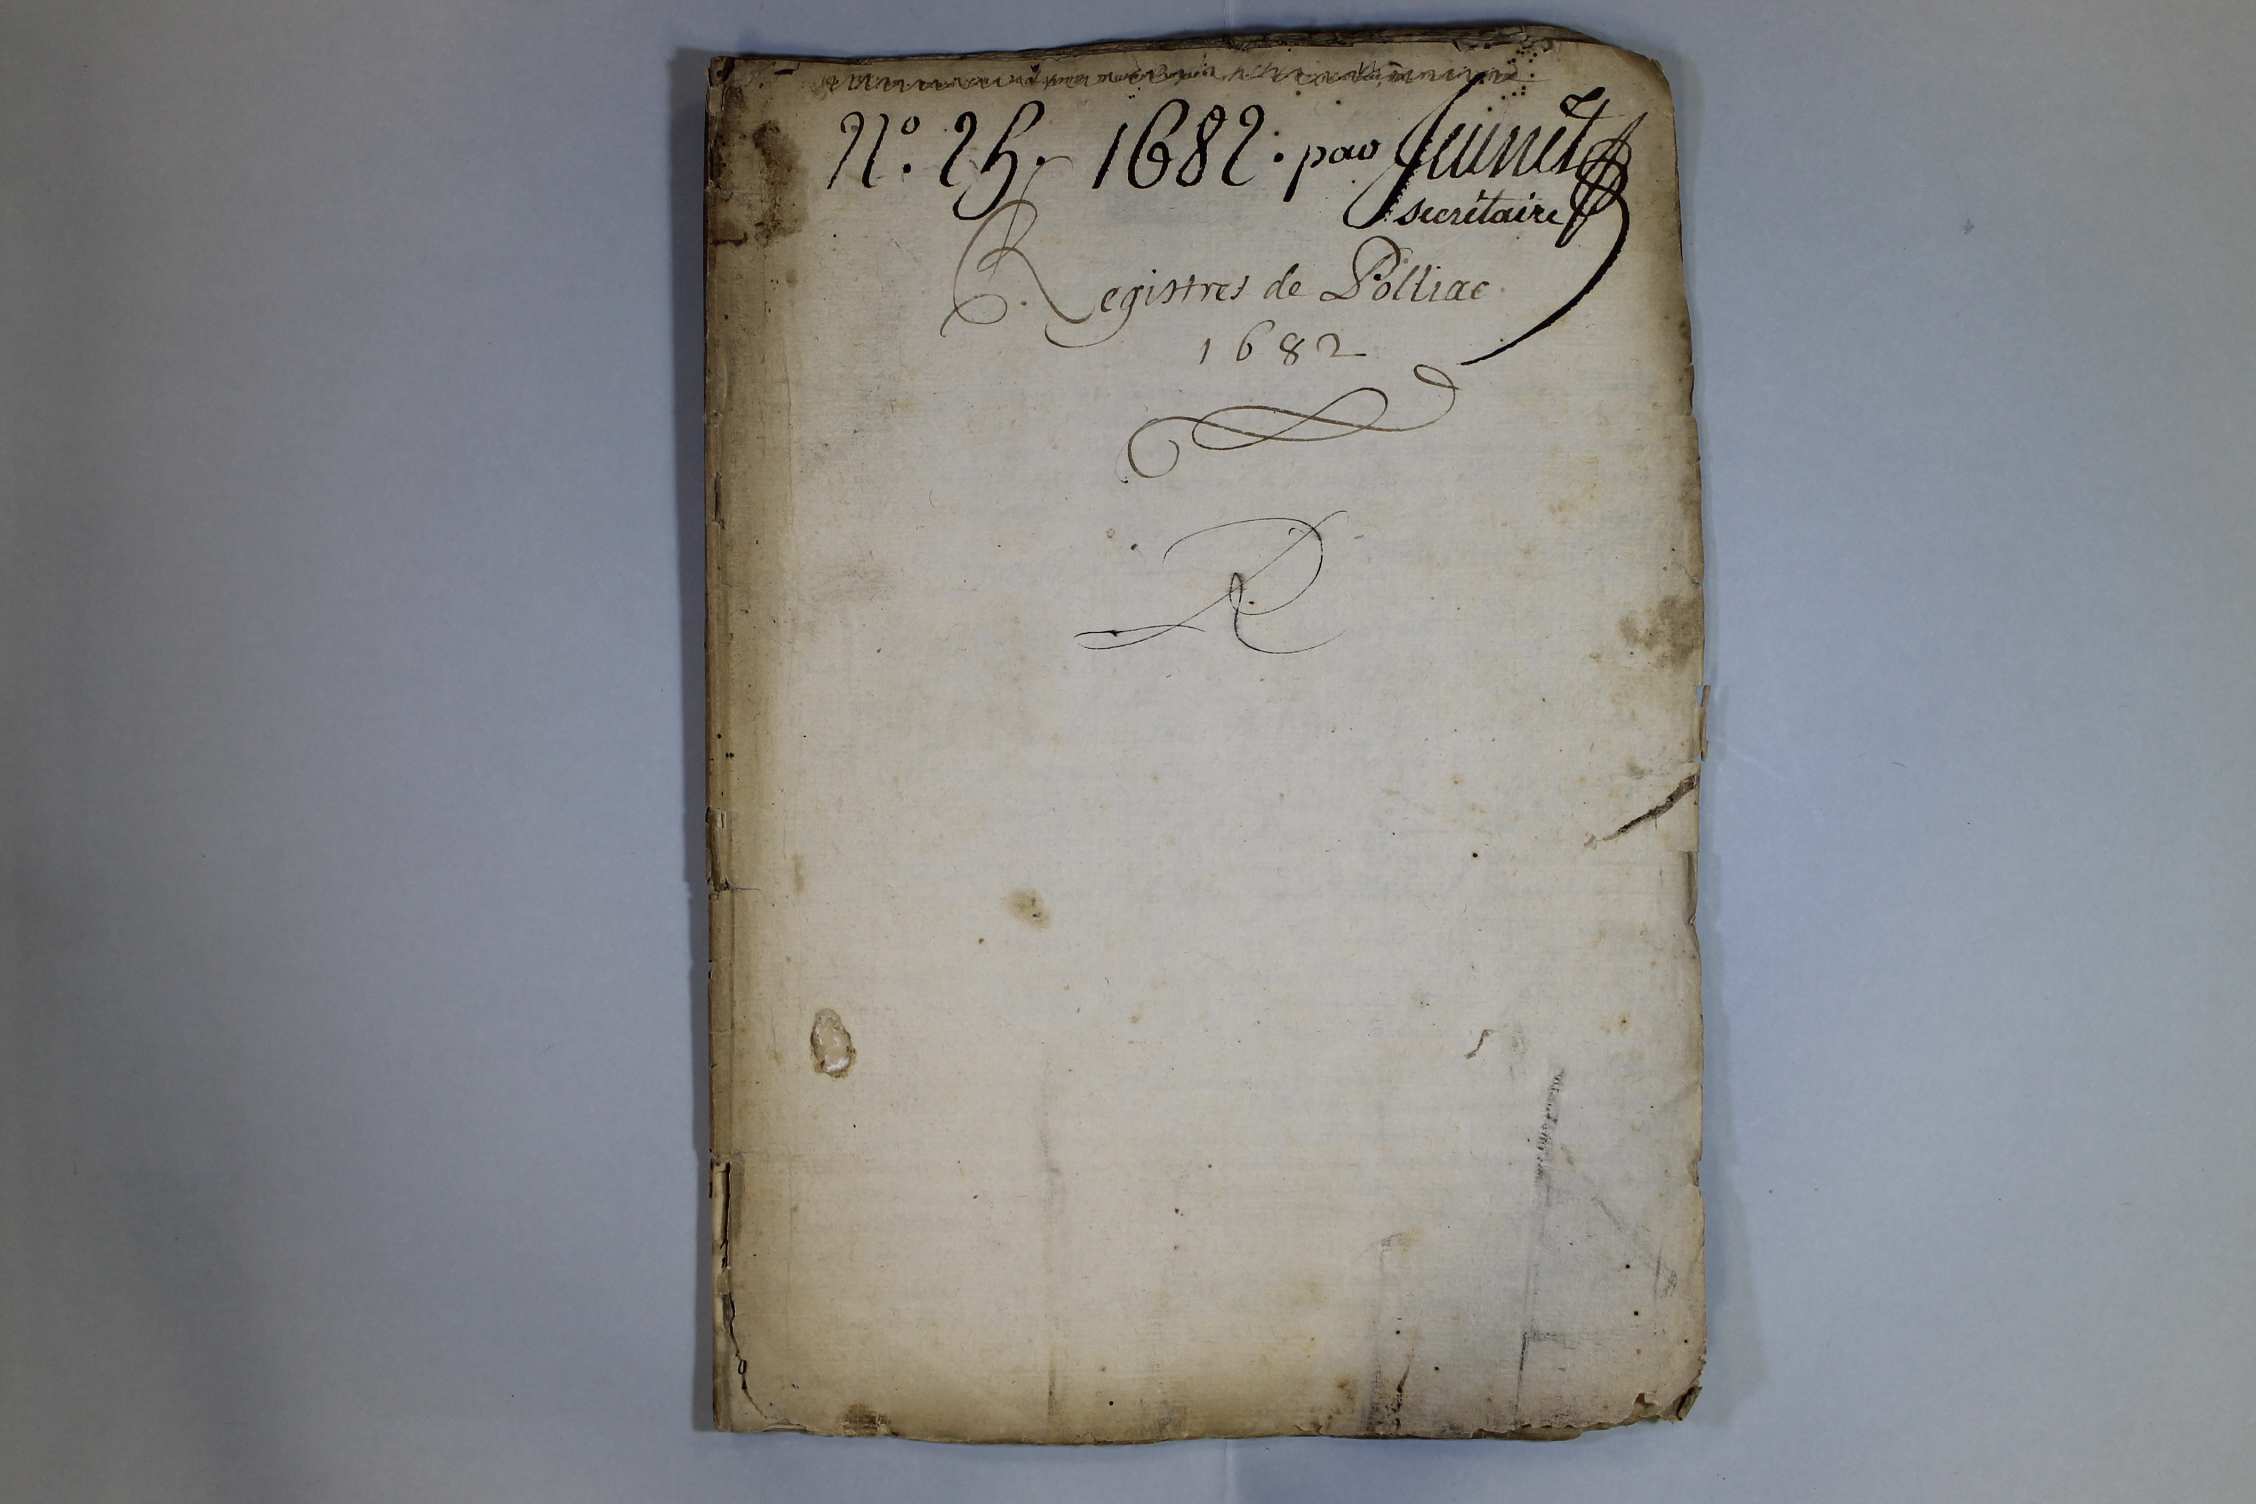 N.º 25. 1682: par Jeunet
secretaire
Registres de Polliac
1682
R